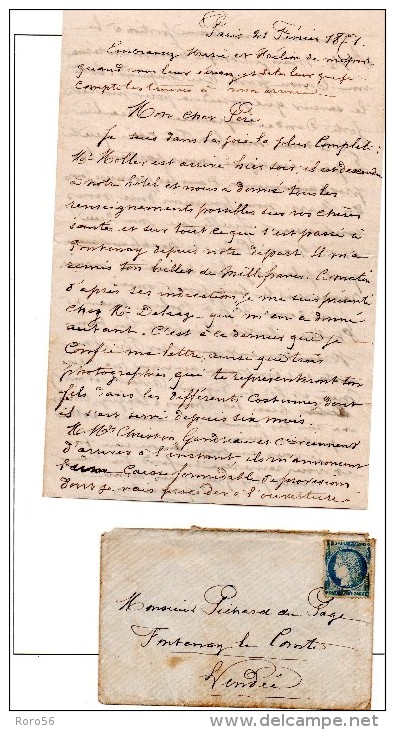 Paris 21 Février 1871.
Embrassez Marie et de ma part
quand vous leur et dites leur que je
compte les à mon arrivée.
Mon Cher Père,
Je suis dans la joie la plus complète;
Mr Moller est arrivé hier soir; il est descendu
à notre hôtel et nous a donné tous les
renseignements possibles sur vos chères
santés et sur tout ce qui s'est passé à
Fontenay depuis notre départ. Il m'a
remis ton billet de mille francs. Ce matin
d'après ses indications, je me suis présenté
chez Mr que m'en a donné
autant. C'est à ce dernier que je
confie ma lettre, ainsi que trois
photographies qui te représenteront ton
fils dans les différents costumes dont
il s'est servi depuis six mois.
M. Mrs et
d'arriver à l'instant, ils m'annoncent
Caisse formidable de provisions
dont je vais procéder à l'ouverture.
Monsieur Pichard du Page
Fontenay le Comte
Vendée
Roro56
www.delcampe.net